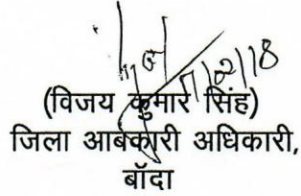 (विजय कुमार सिंह)
जिला आबकारी अधिकारी,
बॉदा